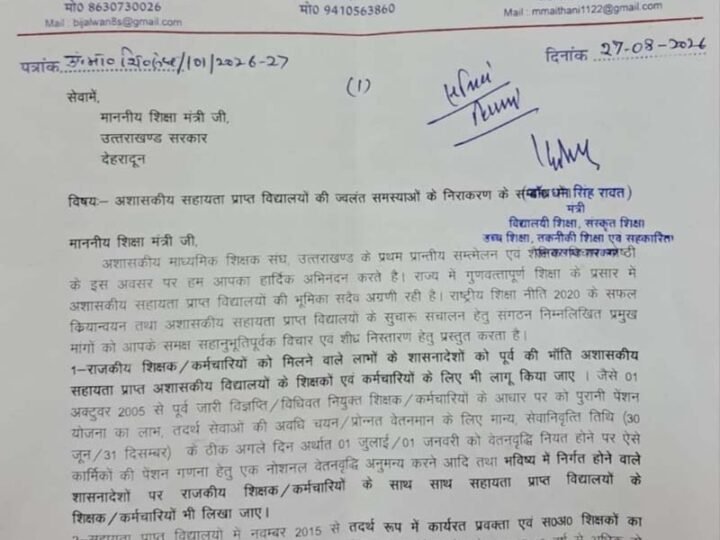 मो0 8630730026 मो0 9410563860
Mail : bijalwan8s@gmail.com Mail : mmaithani1122@gmail.com
पत्रांक /101/2026-27 दिनांक 27-08-2026
(1)
सेवामें,
माननीय शिक्षा मंत्री जी,
उत्तराखण्ड सरकार
देहरादून
विषयः– अशासकीय सहायता प्राप्त विद्यालयों की ज्वलंत समस्याओं के निराकरण के
सिंह रावत)
मंत्री
विद्यालयी शिक्षा, संस्कृत शिक्षा
उच्च शिक्षा, तकनीकी शिक्षा एवं सहकारिता
माननीय शिक्षा मंत्री जी,
अशासकीय माध्यमिक शिक्षक संघ, उत्तराखण्ड के प्रथम प्रान्तीय सम्मेलन एवं
के इस अवसर पर हम आपका हार्दिक अभिनंदन करते है। राज्य में गुणवत्तापूर्ण शिक्षा के प्रसार में
अशासकीय सहायता प्राप्त विद्यालयों की भूमिका सदैव अग्रणी रही है। राष्ट्रीय शिक्षा नीति 2020 के सफल
कियान्वयन तथा अशासकीय सहायता प्राप्त विद्यालयों के सुचारू सचालन हेतु संगठन निम्नलिखित प्रमुख
मांगों को आपके समक्ष सहानुभूतिपूर्वक विचार एवं शीघ्र निस्तारण हेतु प्रस्तुत करता है।
1–राजकीय शिक्षक/कर्मचारियों को मिलने वाले लाभों के शासनादेशों को पूर्व की भाँति अशासकीय
सहायता प्राप्त अशासकीय विद्यालयों के शिक्षकों एवं कर्मचारियों के लिए भी लागू किया जाए । जैसे 01
अक्टुवर 2005 से पूर्व जारी विज्ञप्ति/विधिवत नियुक्त शिक्षक/कर्मचारियों के आधार पर को पुरानी पेंशन
योजना का लाभ, तदर्थ सेवाओं की अवधि चयन/प्रोन्नत वेतनमान के लिए मान्य, सेवानिवृत्ति तिथि (30
जून/31 दिसम्बर) के ठीक अगले दिन अर्थात 01 जुलाई/01 जनवरी को वेतनवृद्धि नियत होने पर ऐसे
कार्मिकों की पेंशन गणना हेतु एक नोशनल वेतनवृद्धि अनुमन्य करने आदि तथा भविष्य में निर्गत होने वाले
शासनादेशों पर राजकीय शिक्षक/कर्मचारियों के साथ साथ सहायता प्राप्त विद्यालयों के
शिक्षक/कर्मचारियों भी लिखा जाए।
सहायता प्राप्त विद्यालयों में नवम्बर 2015 से तदर्थ रूप में कार्यरत प्रवक्ता एवं स0अ0 शिक्षकों का